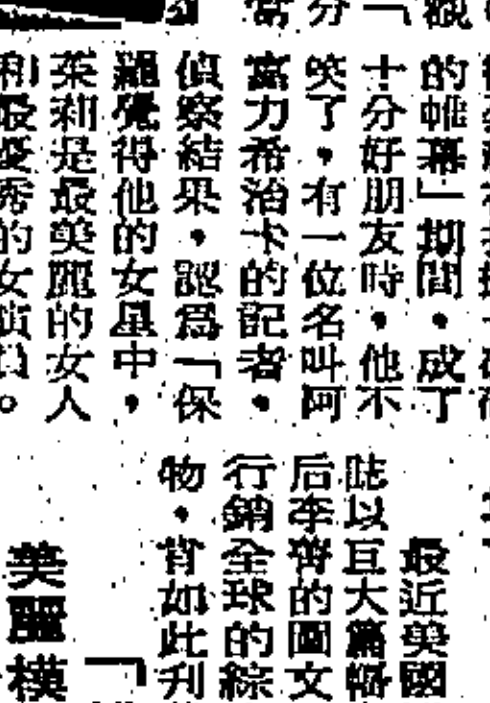 的帷幕」期間，成了
十分好朋友時，他不
笑了，有一位名叫阿
富力希治卡的記者，
偵察結果，認爲「保
羅覺得他的女星中，
茱莉是最美麗的女人
和最優秀的女演員。
最近美國
誌以巨大篇幅
后李菁的圖文
行銷全球的綜
物，肯如此刊
美麗模